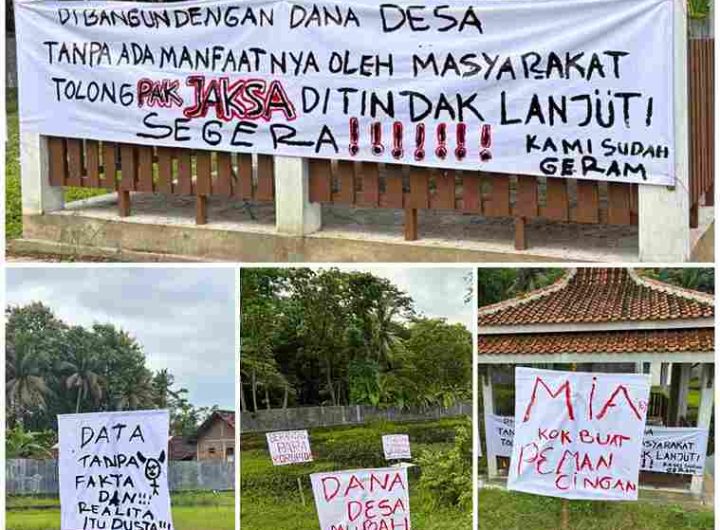 DIBANGUN DENGAN DANA DESA
TANPA ADA MANFAATNYA OLEH MASYARAKAT
TOLONG PAK JAKSA DITINDAK LANJUTI
SEGERA!!!!!!! KAMI SUDAH
GERAM
DATA
TANPA
FAKTA
DAN!!!
REALITA
ITU DUSTA!!!
DANA
DESA
MIA
KOK BUAT
PEMAN
CINGAN
TOLONG
MASYARAKAT
LANJUTI
KAMI SUDAH
GERAM